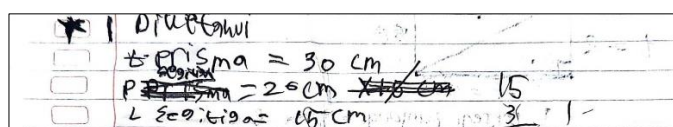 ★ 1 Diketahui
t prisma = 30 cm
P segitiga = 20 cm 15
L Segitiga = 15 cm 3 1